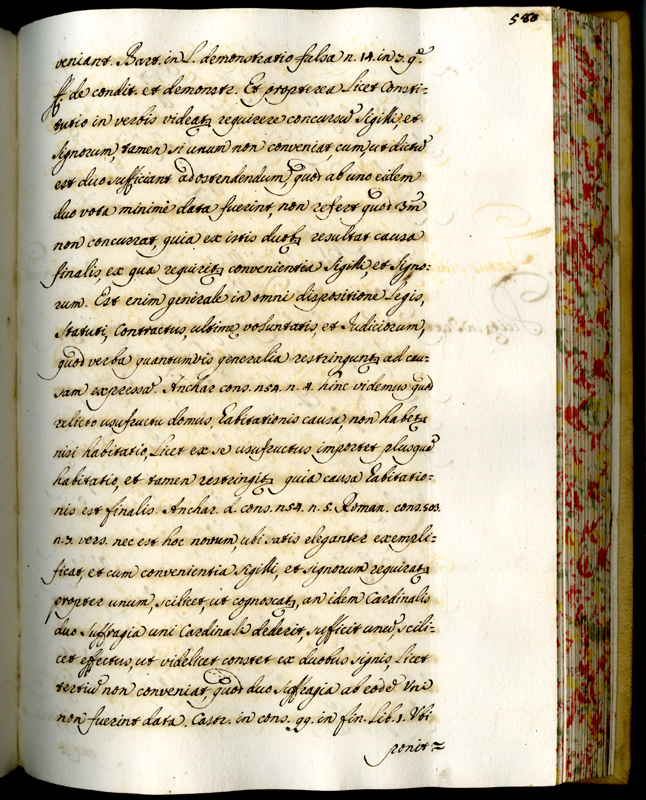 580
veniant. Bart. in L. demonstratio falsa n. 14. in 3. q.
ff. de condit. et demonstr. Et propterea Licet Consti=
tutio in verbis videatr requirere concursū Sigilli, et
signorum, tamen si unum non conveniat, cum ut dictū
est duo sufficiant ad ostendendum, quod ab uno eidem
duo vota minimè data fuerint, non refert quod 3m
non concurrat, quia ex istis duobz resultat causa
finalis, ex qua requiritr convenientia Sigilli, et signo=
rum. Est enim generale in omni dispositione Legis,
Statuti, Contractus, ultimę voluntatis, et Judiciorum,
quod verba quantumvis generalia restringuntr ad cau=
sam expressā. Anchar. cons. n54. n. 4. hinc videmus quod
relicto usufructu domus, habitationis causa, non habetr
nisi habitatio, Licet ex se usufructus importet plusquā
habitatio, et tamen restringitr quia causa habitatio=
nis est finalis. Anchar. d. cons. n54. n. 5. Roman. cons. 503.
n. 3. vers. nec est hoc novum, ubi satis eleganter exempli=
ficat, et cum convenientia sigilli, et signorum requiratr
propter unum, scilicet, ut cognoscatr, an idem Cardinalis
duo Suffragia uni Cardinali dederit, sufficit unū, scili=
cet effectus, ut videlicet constet ex duobus signis, Licet
tertiū non conveniat, quod duo Suffragia ab eodē Uni
non fuerint data. Castr. in cons. 99. in fin. Lib. 1. Vbi
ponit